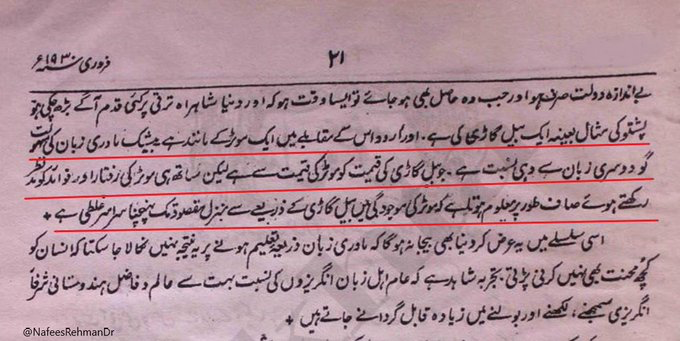 فروری ۱۹۳۰ء
۲۱
بے اندازہ دولت صرف ہو اور جب وہ حاصل بھی ہو جائے تو ایسا وقت ہو کہ اور دنیا شاہراہ ترقی پر کئی قدم آگے بڑھ چکی ہو
پشتو کی مثال بعینہ ایک بیل گاڑی کی ہے۔ اور اردو اس کے مقابلے میں ایک موٹر کے مانند ہے بیشک مادری زبان کی سہولت
کو دوسری زبان سے وہی نسبت ہے۔ جو بیل گاڑی کی قیمت کو موٹر کی قیمت سے ہے لیکن ساتھ ہی موٹر کی رفتار اور فوائد کو مدنظر
رکھتے ہوئے صاف طور پر معلوم ہوتا ہے کہ موٹر کی موجودگی میں بیل گاڑی کے ذریعے سے منزل مقصود تک پہنچنا سراسر غلطی ہے +
اسی سلسلے میں یہ عرض کر دینا بھی بیجا نہ ہوگا کہ مادری زبان ذریعۂ تعلیم ہونے پر یہ نتیجہ نہیں نکالا جا سکتا کہ انسان کو
کچھ محنت بھی نہیں کرنی پڑتی۔ تجربہ شاہد ہے کہ عام اہل زبان انگریزوں کی نسبت بہت سے عالم و فاضل ہندوستانی شرفا
انگریزی سمجھنے، لکھنے اور بولنے میں زیادہ قابل گردانے جاتے ہیں +
@NafeesRehmanDr